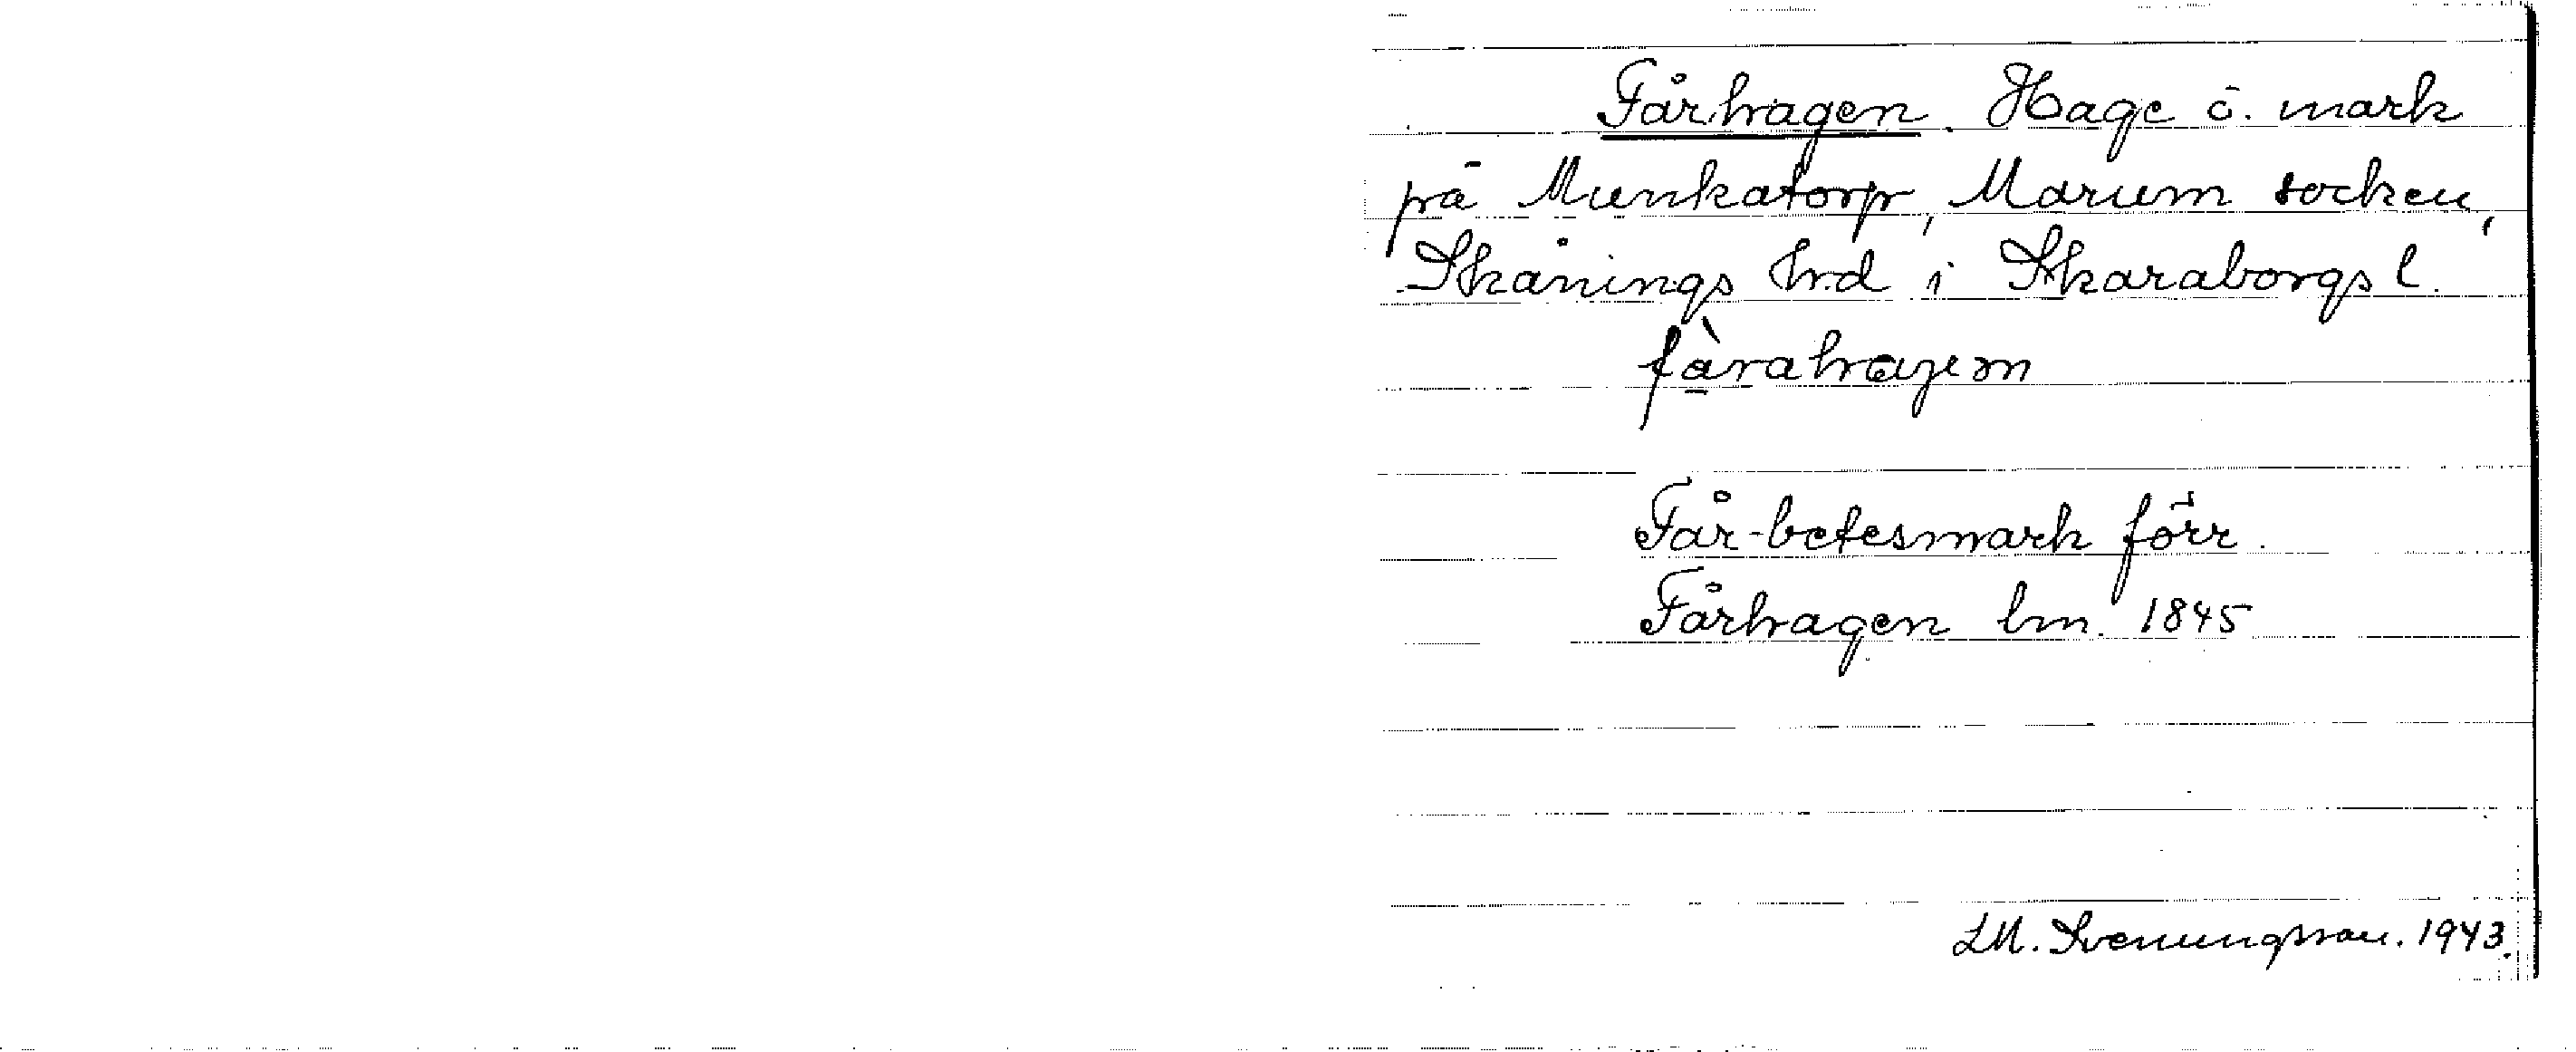 Fårhagen. Hage ö. mark
på Munkatorp, Marum socken,
Skånings hrd i Skaraborgs l.
fàrahagem
Får-betesmark förr.
Fårhagen lm. 1845
LM. Svenungsson. 1943.